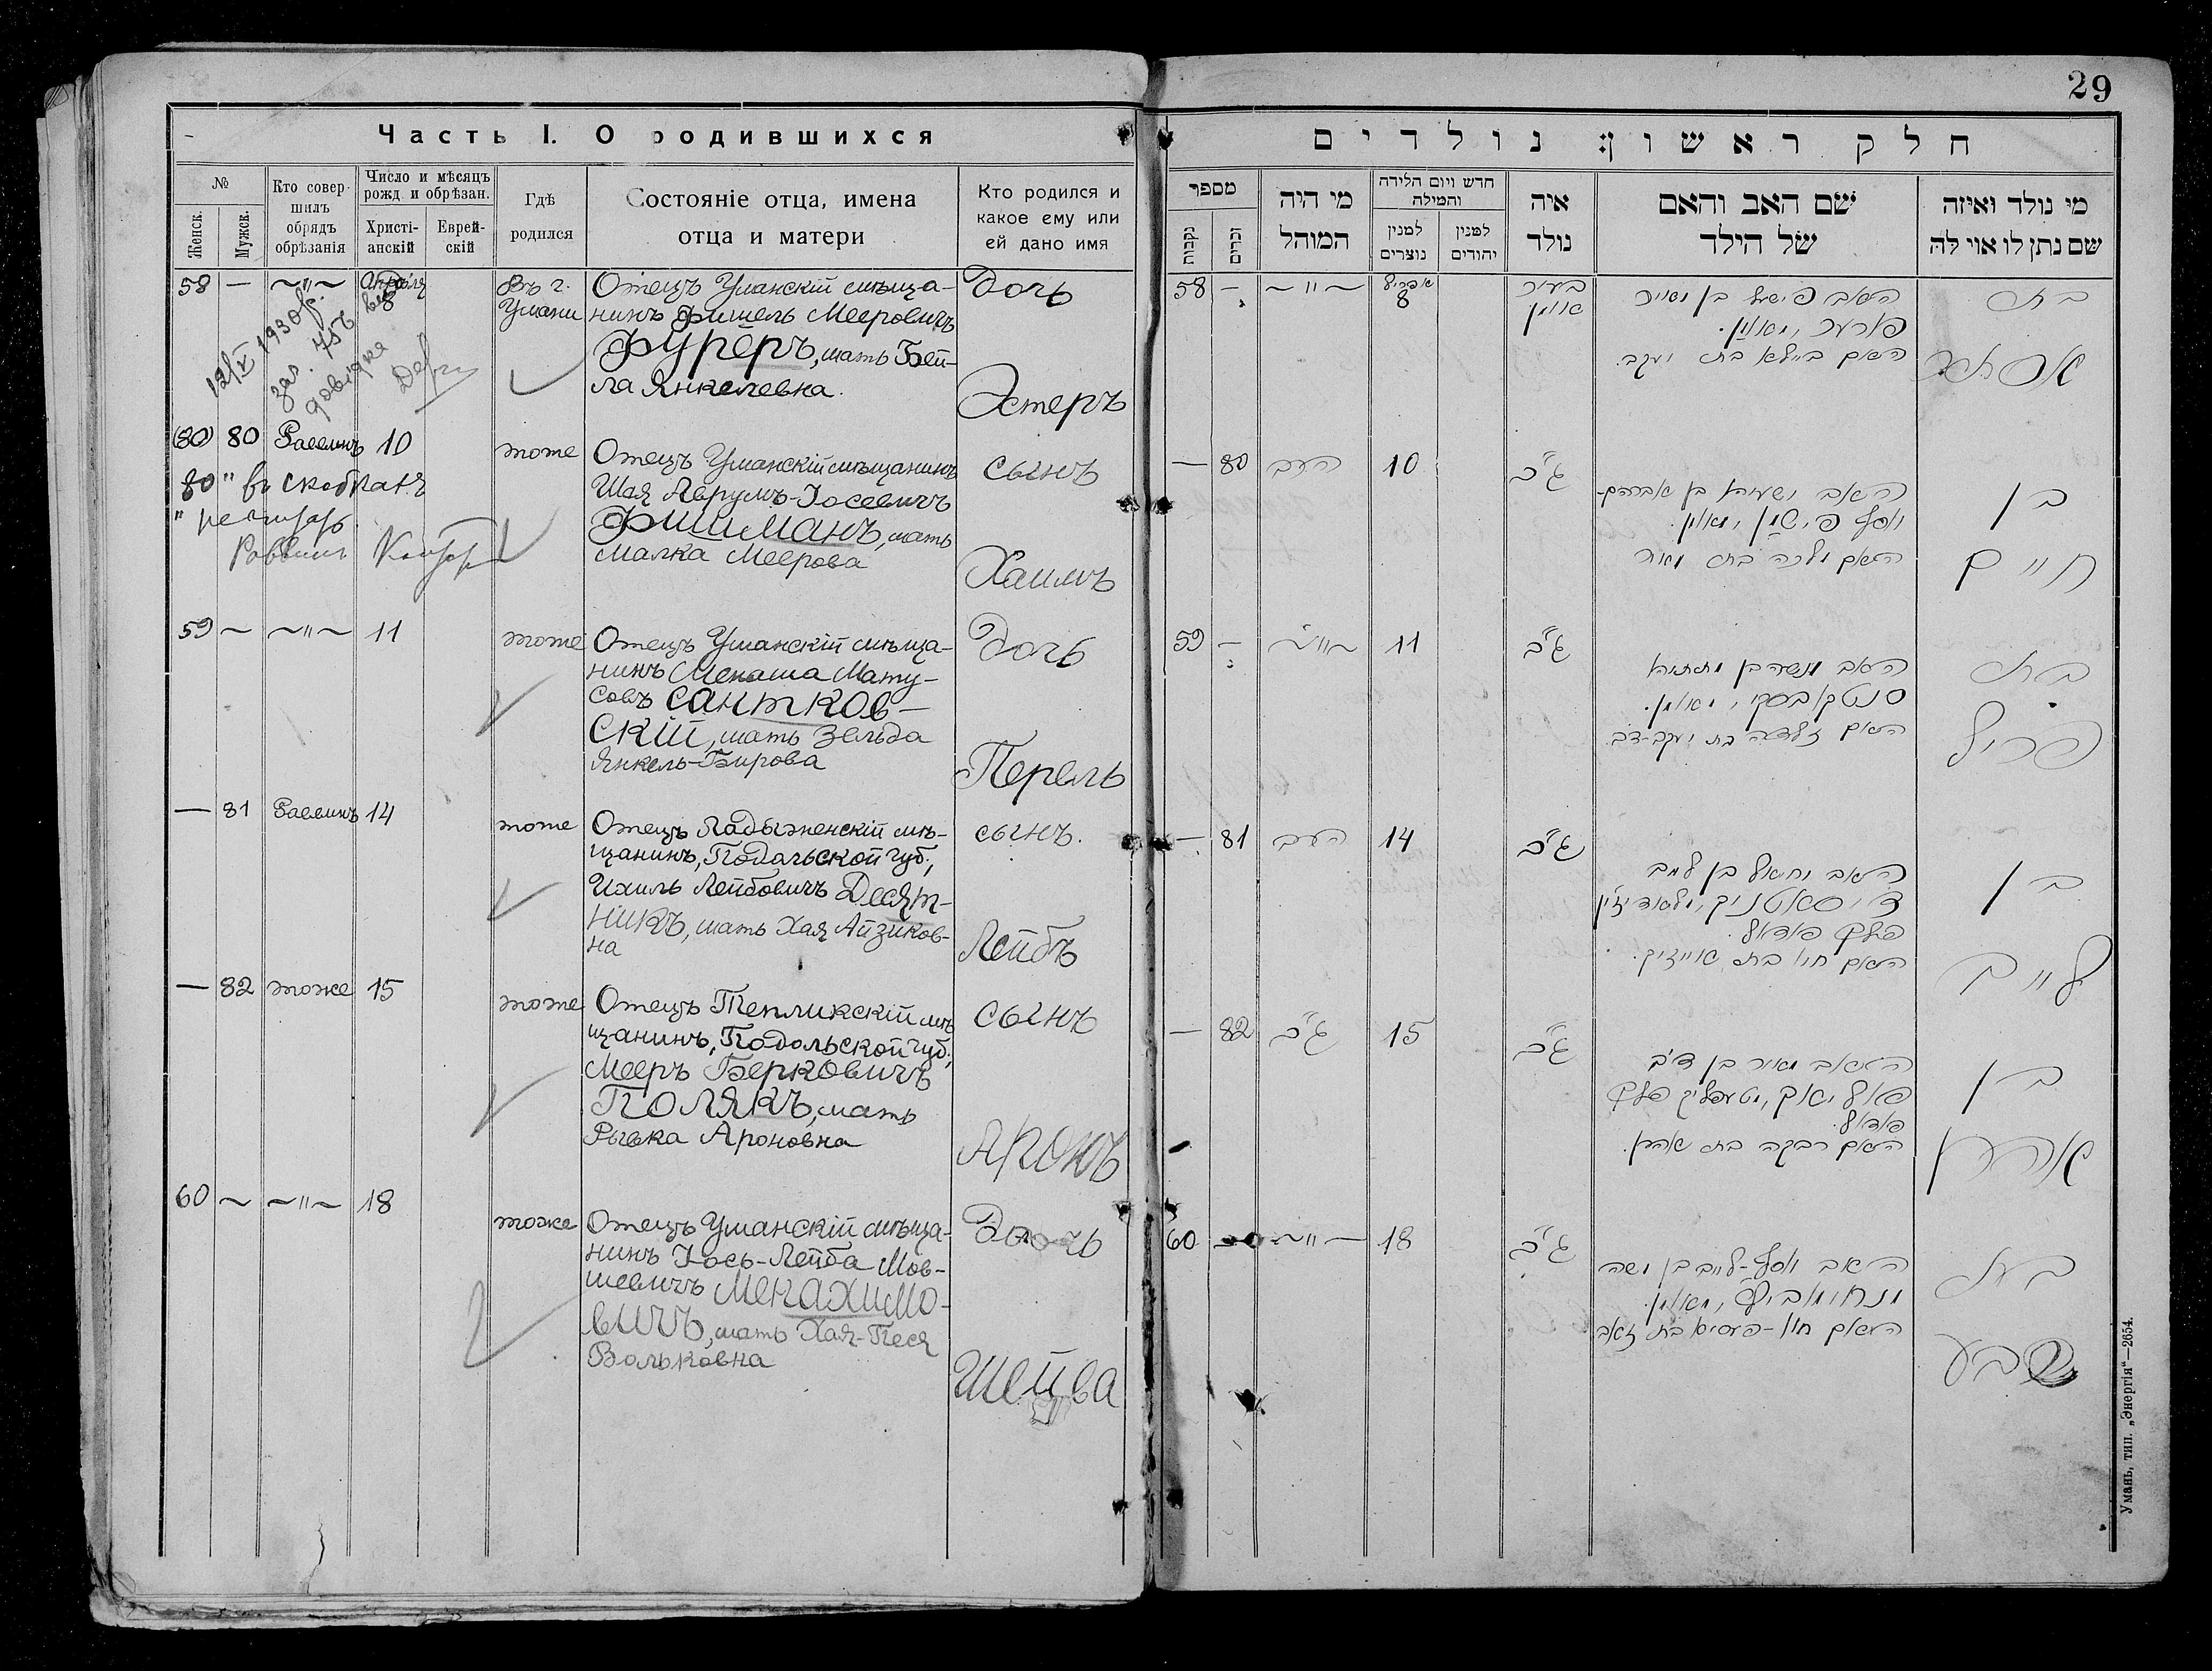 29
Часть I. О родившихся
№
Женск.
Мужск.
Кто совер-
шилъ
обрядъ
обрѣзанія
Число и мѣсяцъ
рожд. и обрѣзан.
Христі-
анскій
Еврей-
скій
Гдѣ
родился
Состояніе отца, имена
отца и матери
Кто родился и
какое ему или
ей дано имя
58 — ~"~ Апрѣля
8
въ г.
Умани
Отецъ Уманскій мѣща-
нинъ Фишель Мееровичъ
Фуреръ, мать Бей-
ла Янкелевна.
Дочь
Эстеръ
12/V 1930 г.
довідка
(80) 80 Раввинъ 10
80 " въ скобкахъ
Раввинъ
тоже
Отецъ Уманскій мѣщанинъ
Шая Аврумъ-Іосевичъ
Фишманъ, мать
Малка Меерова
сынъ
Хаимъ
59 ~ ~"~ 11
тоже
Отецъ Уманскій мѣща-
нинъ Менаша Мату-
совъ Сантков-
скій, мать Зельда
Янкель-Бирова
Дочь
Перель
— 81 Раввинъ 14
тоже
Отецъ Ладыженскій мѣ-
щанинъ, Подольской губ.,
Ихиль Лейбовичъ Десят-
никъ, мать Хая Айзиков-
на
сынъ.
Лейбъ
— 82 тоже 15
тоже
Отецъ Тепликскій мѣ
щанинъ, Подольской губ.,
Мееръ Берковичъ
Полякъ, мать
Рывка Ароновна
сынъ
Аронъ
60 ~ ~"~ 18
тоже
Отецъ Уманскій мѣща-
нинъ Іось-Лейба Мов-
шевичъ Менахимо-
вичъ, мать Хая-Песя
Вольковна
Дочь
Шейва
חלק ראשון: נולדים
מספר
נקבות
זכרים
מי היה
המוהל
חדש ויום הלידה
והמילה
למנין
נוצרים
למנין
יהודים
איה
נולד
שם האב והאם
של הילד
מי נולד ואיזה
שם נתן לו אוי לה
58 — ~"~ אפריל
8
בעיר
אומין
האב פישל בן מאיר
פורער, מאומין.
האם ביילא בת יעקב.
בת
אסתר
— 80 הרב 10 ג"כ
האב ישעיה בן אברהם-
יוסף פישמן, מאומין.
האם מלכה בת מאיר
בן
חיים
59 — ~"~ 11 ג"כ
האב מנשה בן מתתיהו
סנטקובסקי, מאומין.
האם זלדה בת יעקב-דב.
בת
פריל
— 81 הרב 14 ג"כ
האב יחיאל בן לייב
דיסאטניק, מלאודיזין
פלך פודאל.
האם חיה בת אייזיק.
בן
לייב
— 82 ג"כ 15 ג"כ
האב מאיר בן דב
פאליאק, מטעפליק פלך
פודאל.
האם רבקה בת אהרן.
בן
אהרן
60 — ~"~ 18 ג"כ
האב יוסף-לייב בן משה
מנחימאביץ, מאומין.
האם חיה-פעסיא בת זאב
בת
שבע
Умань, тип. „Энергія“—2654.